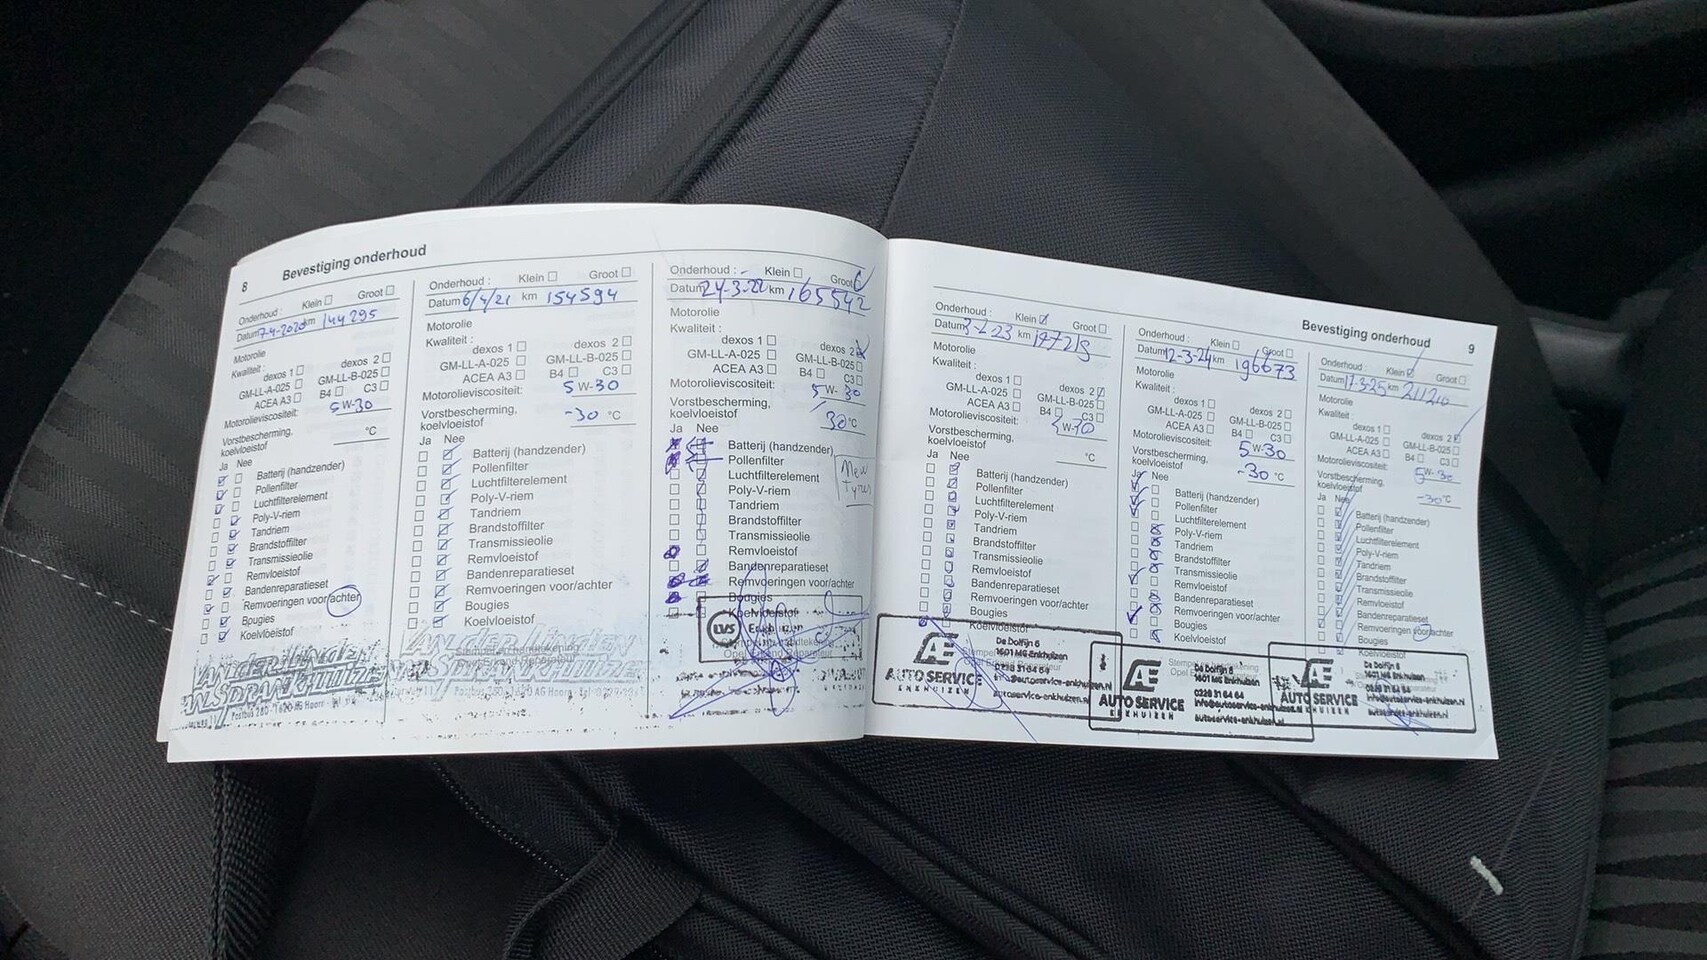 8
Bevestiging onderhoud
Onderhoud : Klein Groot
Datum 7-4-2020 km 144295
Motorolie
Kwaliteit :
dexos 1 dexos 2
GM-LL-A-025 GM-LL-B-025
ACEA A3 B4 C3
Motorolieviscositeit:
5W-30
Vorstbescherming,
koelvloeistof °C
Ja Nee
Batterij (handzender)
Pollenfilter
Luchtfilterelement
Poly-V-riem
Tandriem
Brandstoffilter
Transmissieolie
Remvloeistof
Bandenreparatieset
Remvoeringen voor/achter
Bougies
Koelvloeistof
VAN DER LINDEN
VAN SPRANKHUIZEN
Postbus 260 - 1620 AG Hoorn
Onderhoud : Klein Groot
Datum 6/4/21 km 154594
Motorolie
Kwaliteit :
dexos 1 dexos 2
GM-LL-A-025 GM-LL-B-025
ACEA A3 B4 C3
Motorolieviscositeit: 5W-30
Vorstbescherming,
koelvloeistof -30 °C
Ja Nee
Batterij (handzender)
Pollenfilter
Luchtfilterelement
Poly-V-riem
Tandriem
Brandstoffilter
Transmissieolie
Remvloeistof
Bandenreparatieset
Remvoeringen voor/achter
Bougies
Koelvloeistof
VAN DER LINDEN
Postbus 260 - 1620 AG Hoorn
Onderhoud : Klein Groot
Datum 24-3-22 km 165542
Motorolie
Kwaliteit :
dexos 1 dexos 2
GM-LL-A-025 GM-LL-B-025
ACEA A3 B4 C3
Motorolieviscositeit: 5W-30
Vorstbescherming,
koelvloeistof 30 °C
Ja Nee
Batterij (handzender)
Pollenfilter
Luchtfilterelement
Poly-V-riem
Tandriem
Brandstoffilter
Transmissieolie
Remvloeistof
Bandenreparatieset
Remvoeringen voor/achter
Bougies
Koelvloeistof
New
Tyres
LVS Enkhuizen
Opel Erkend Reparateur
Bevestiging onderhoud
9
Onderhoud : Klein Groot
Datum km
Motorolie
Kwaliteit :
dexos 1 dexos 2
GM-LL-A-025 GM-LL-B-025
ACEA A3 B4 C3
Motorolieviscositeit:
Vorstbescherming,
koelvloeistof °C
Ja Nee
Batterij (handzender)
Pollenfilter
Luchtfilterelement
Poly-V-riem
Tandriem
Brandstoffilter
Transmissieolie
Remvloeistof
Bandenreparatieset
Remvoeringen voor/achter
Bougies
Koelvloeistof
AE
AUTO SERVICE
ENKHUIZEN
De Dolfijn 6
1601 MG Enkhuizen
0228 31 64 64
info@autoservice-enkhuizen.nl
autoservice-enkhuizen.nl
Onderhoud : Klein Groot
Datum 12-3-24 km 196673
Motorolie
Kwaliteit :
dexos 1 dexos 2
GM-LL-A-025 GM-LL-B-025
ACEA A3 B4 C3
Motorolieviscositeit: 5W-30
Vorstbescherming,
koelvloeistof -30 °C
Ja Nee
Batterij (handzender)
Pollenfilter
Luchtfilterelement
Poly-V-riem
Tandriem
Brandstoffilter
Transmissieolie
Remvloeistof
Bandenreparatieset
Remvoeringen voor/achter
Bougies
Koelvloeistof
AE
AUTO SERVICE
ENKHUIZEN
De Dolfijn 6
1601 MG Enkhuizen
0228 31 64 64
info@autoservice-enkhuizen.nl
autoservice-enkhuizen.nl
Onderhoud : Klein Groot
Datum 17-3-25 km 211210
Motorolie
Kwaliteit :
dexos 1 dexos 2
GM-LL-A-025 GM-LL-B-025
ACEA A3 B4 C3
Motorolieviscositeit: 5W-30
Vorstbescherming,
koelvloeistof -30 °C
Ja Nee
Batterij (handzender)
Pollenfilter
Luchtfilterelement
Poly-V-riem
Tandriem
Brandstoffilter
Transmissieolie
Remvloeistof
Bandenreparatieset
Remvoeringen voor/achter
Bougies
Koelvloeistof
AE
AUTO SERVICE
ENKHUIZEN
De Dolfijn 6
1601 MG Enkhuizen
0228 31 64 64
info@autoservice-enkhuizen.nl
autoservice-enkhuizen.nl